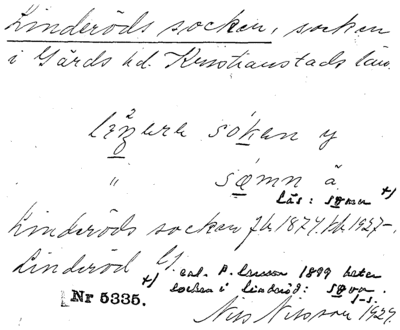 Linderöds socken, socken
i Gärds hd. Kristianstads län.
sóken y
" sœmn ä
+) läs: sœmn
Linderöds socken jb 1877. kb 1927-.
Linderöd G.
+) enl. P. Larsson 1899 heter
socken i Linderöd: sœvn.
Nr 5335.
Nils Nilsson 1929.